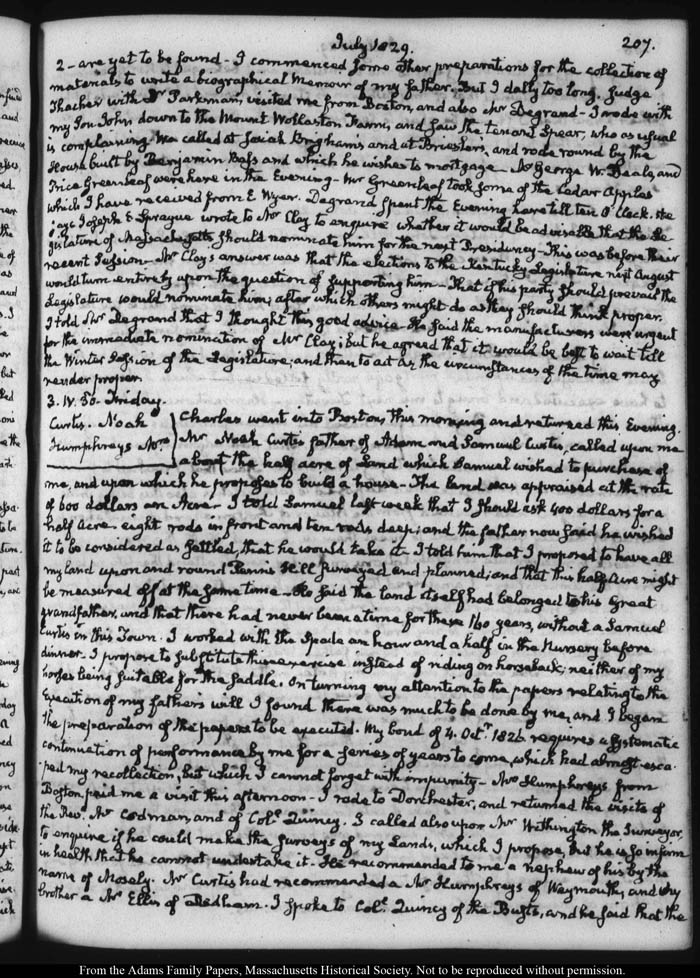 July 1829.
207.
2 - are yet to be found - I commenced some other preparations for the collection of
materials to write a biographical Memoir of my father. But I dally too long. Judge
Thacher with Dr Parkman, visited me from Boston, and also Mr Degrand - I rode with
my Son John down to the Mount Wollaston Farm, and saw the tenant Spear, who as usual
is complaining. We called at Josiah Brigham's and at Briesler's, and rode round by the
House built by Benjamin Bass and which he wishes to mortgage - Mr George W. Beale, and
Price Greenleaf were here in the Evening - Mr Greenleaf took some of the Cedar Apples
which I have received from E Wyer. Degrand spent the Evening here till ten O'Clock. He
says Joseph E Sprague wrote to Mr Clay to enquire whether it would be advisable that the Le-
gislature of Massachusetts should nominate him for the next Presidency - This was before their
recent Session - Mr Clay's answer was that the elections to the Kentucky Legislature next August
would turn entirely upon the question of supporting him - That if his party should prevail the
Legislature would nominate him; after which others might do as they should think proper.
I told Mr Degrand that I thought this good advice - He said the manufacturers were urgent
for the immediate nomination of Mr Clay; but he agreed that it would be best to wait till
the Winter Session of the Legislature; and then to act as the circumstances of the time may
render proper.
3. IV. 30. Friday.
Curtis. Noah
Humphreys Mr
Charles went into Boston, this morning and returned this Evening.
Mr Noah Curtis father of Adam and Samuel Curtis, called upon me
about the half acre of Land which Samuel wished to purchase of
me, and upon which he proposes to build a house - The land was appraised at the rate
of 600 dollars an Acre. I told Samuel last week that I should ask 400 dollars for a
half Acre - eight rods in front and ten rods deep; and the father now said he wished
it to be considered as settled, that he would take it - I told him that I proposed to have all
my land upon and round Penn's Hill surveyed and planned; and that this half Acre might
be measured off at the same time - He said the land itself had belonged to his Great
grandfather, and that there had never been a time for these 160 years, without a Samuel
Curtis in this Town. I worked with the Spade an hour and a half in the Nursery before
dinner. I propose to substitute this exercise instead of riding on horseback; neither of my
horses being suitable for the saddle. On turning my attention to the papers relating to the
Execution of my father's will I found there was much to be done by me, and I began
the preparation of the papers to be executed. My bond of 4. Octr. 1826 requires a systematic
continuation of performance by me for a series of years to come, which had almost esca-
ped my recollection, but which I cannot forget with impunity - Mr Humphreys from
Boston, paid me a visit this afternoon - I rode to Dorchester, and returned the visits of
the Revd. Mr Codman, and of Coll. Quincy. I called also upon Mr Withington the Surveyor,
to enquire if he could make the surveys of my Lands, which I propose, but he is so infirm
in health that he cannot undertake it - He recommended to me a nephew of his by the
name of Mosely. Mr Curtis had recommended a Mr Humphreys of Weymouth, and my
brother a Mr Ellis of Dedham. I spoke to Coll. Quincy of the Busts, and he said that the
From the Adams Family Papers, Massachusetts Historical Society. Not to be reproduced without permission.